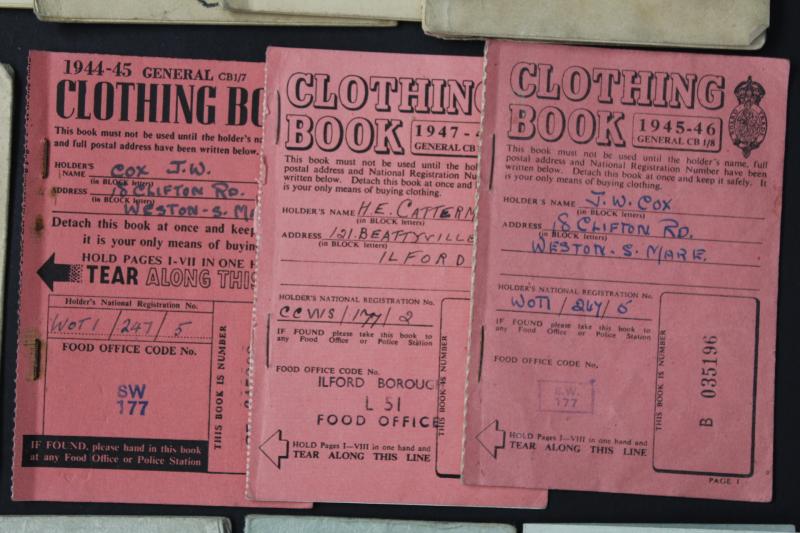 1944-45 GENERAL CB1/7
CLOTHING BO
This book must not be used until the holder's na
and full postal address have been written below.
HOLDER'S
NAME COX J.W.
(in BLOCK letters)
ADDRESS 18 CLIFTON RD.
(in BLOCK letters)
WESTON-S. MA
Detach this book at once and keep
it is your only means of buying
HOLD PAGES I-VII IN ONE H
TEAR ALONG THIS
Holder's National Registration No.
WOTI / 247 / 5
FOOD OFFICE CODE No.
SW
177
THIS BOOK IS NUMBER
IF FOUND, please hand in this book
at any Food Office or Police Station
CLOTHING
BOOK 1947-4
GENERAL CB
This book must not be used until the hol
postal address and National Registration Num
written below. Detach this book at once and
is your only means of buying clothing.
HOLDER'S NAME H.E. CATTERM
(in BLOCK letters)
ADDRESS 121. BEATTYVILLE
(in BLOCK letters)
ILFORD
HOLDER'S NATIONAL REGISTRATION No.
CCWS / 177 / 2
IF FOUND please take this book to
any Food Office or Police Station
FOOD OFFICE CODE No.
ILFORD BOROUGH
L 51
FOOD OFFICE
THIS BOOK IS NUMBER
HOLD Pages I—VIII in one hand and
TEAR ALONG THIS LINE
CLOTHING
BOOK 1945-46
GENERAL CB 1/8
This book must not be used until the holder's name, full
postal address and National Registration Number have been
written below. Detach this book at once and keep it safely. It
is your only means of buying clothing.
HOLDER'S NAME J.W. COX
(in BLOCK letters)
ADDRESS 18 CLIFTON RD.
(in BLOCK letters)
WESTON-S. MARE.
HOLDER'S NATIONAL REGISTRATION No.
WOTI / 247 / 5
IF FOUND please take this book to
any Food Office or Police Station
FOOD OFFICE CODE No.
S.W.
177
THIS BOOK IS NUMBER
B 035196
HOLD Pages I—VIII in one hand and
TEAR ALONG THIS LINE
PAGE I